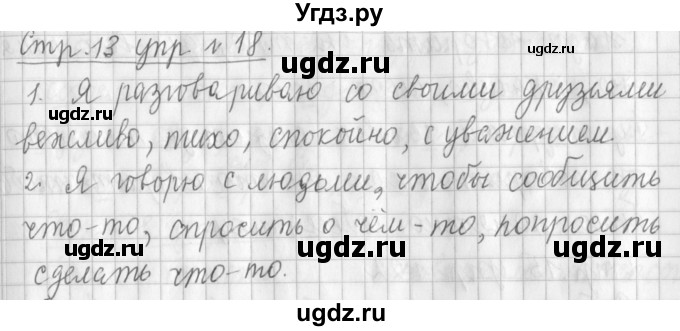 Угдз.ру
Стр. 13 упр № 18.
1. Я разговариваю со своими друзьями
вежливо, тихо, спокойно, с уважением.
2. Я говорю с людьми, чтобы сообщить
что-то, спросить о чём-то, попросить
сделать что-то.
ugdz.ru
ugdz.ru
ugdz.ru
ugdz.ru
ugdz.ru
ugdz.ru
ugdz.ru
ugdz.ru